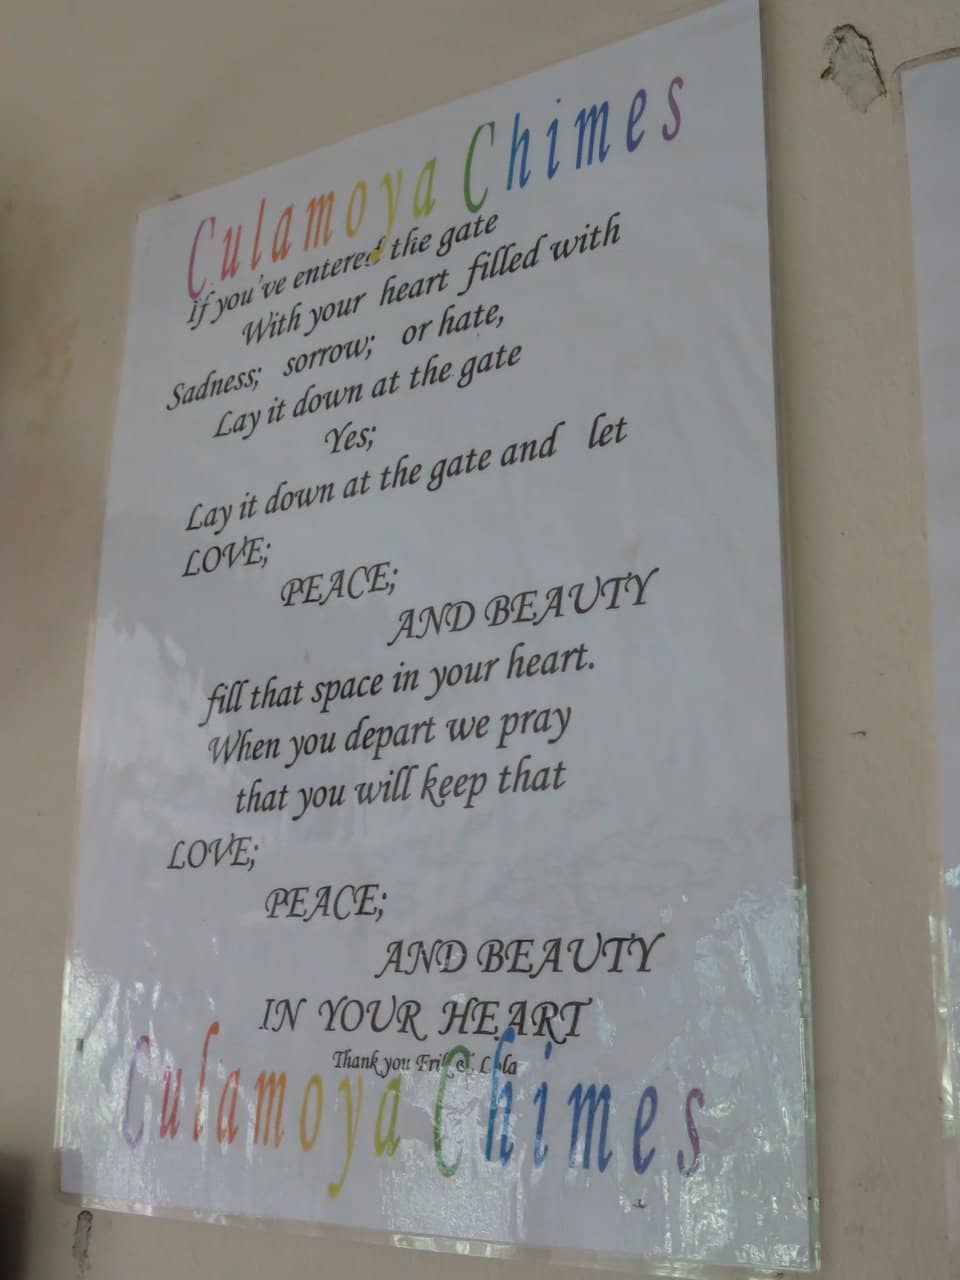 Culamoya Chimes
If you've entered the gate
With your heart filled with
Sadness; sorrow; or hate,
Lay it down at the gate
Yes;
Lay it down at the gate and let
LOVE;
PEACE;
AND BEAUTY
fill that space in your heart.
When you depart we pray
that you will keep that
LOVE;
PEACE;
AND BEAUTY
IN YOUR HEART
Thank you
Culamoya Chimes